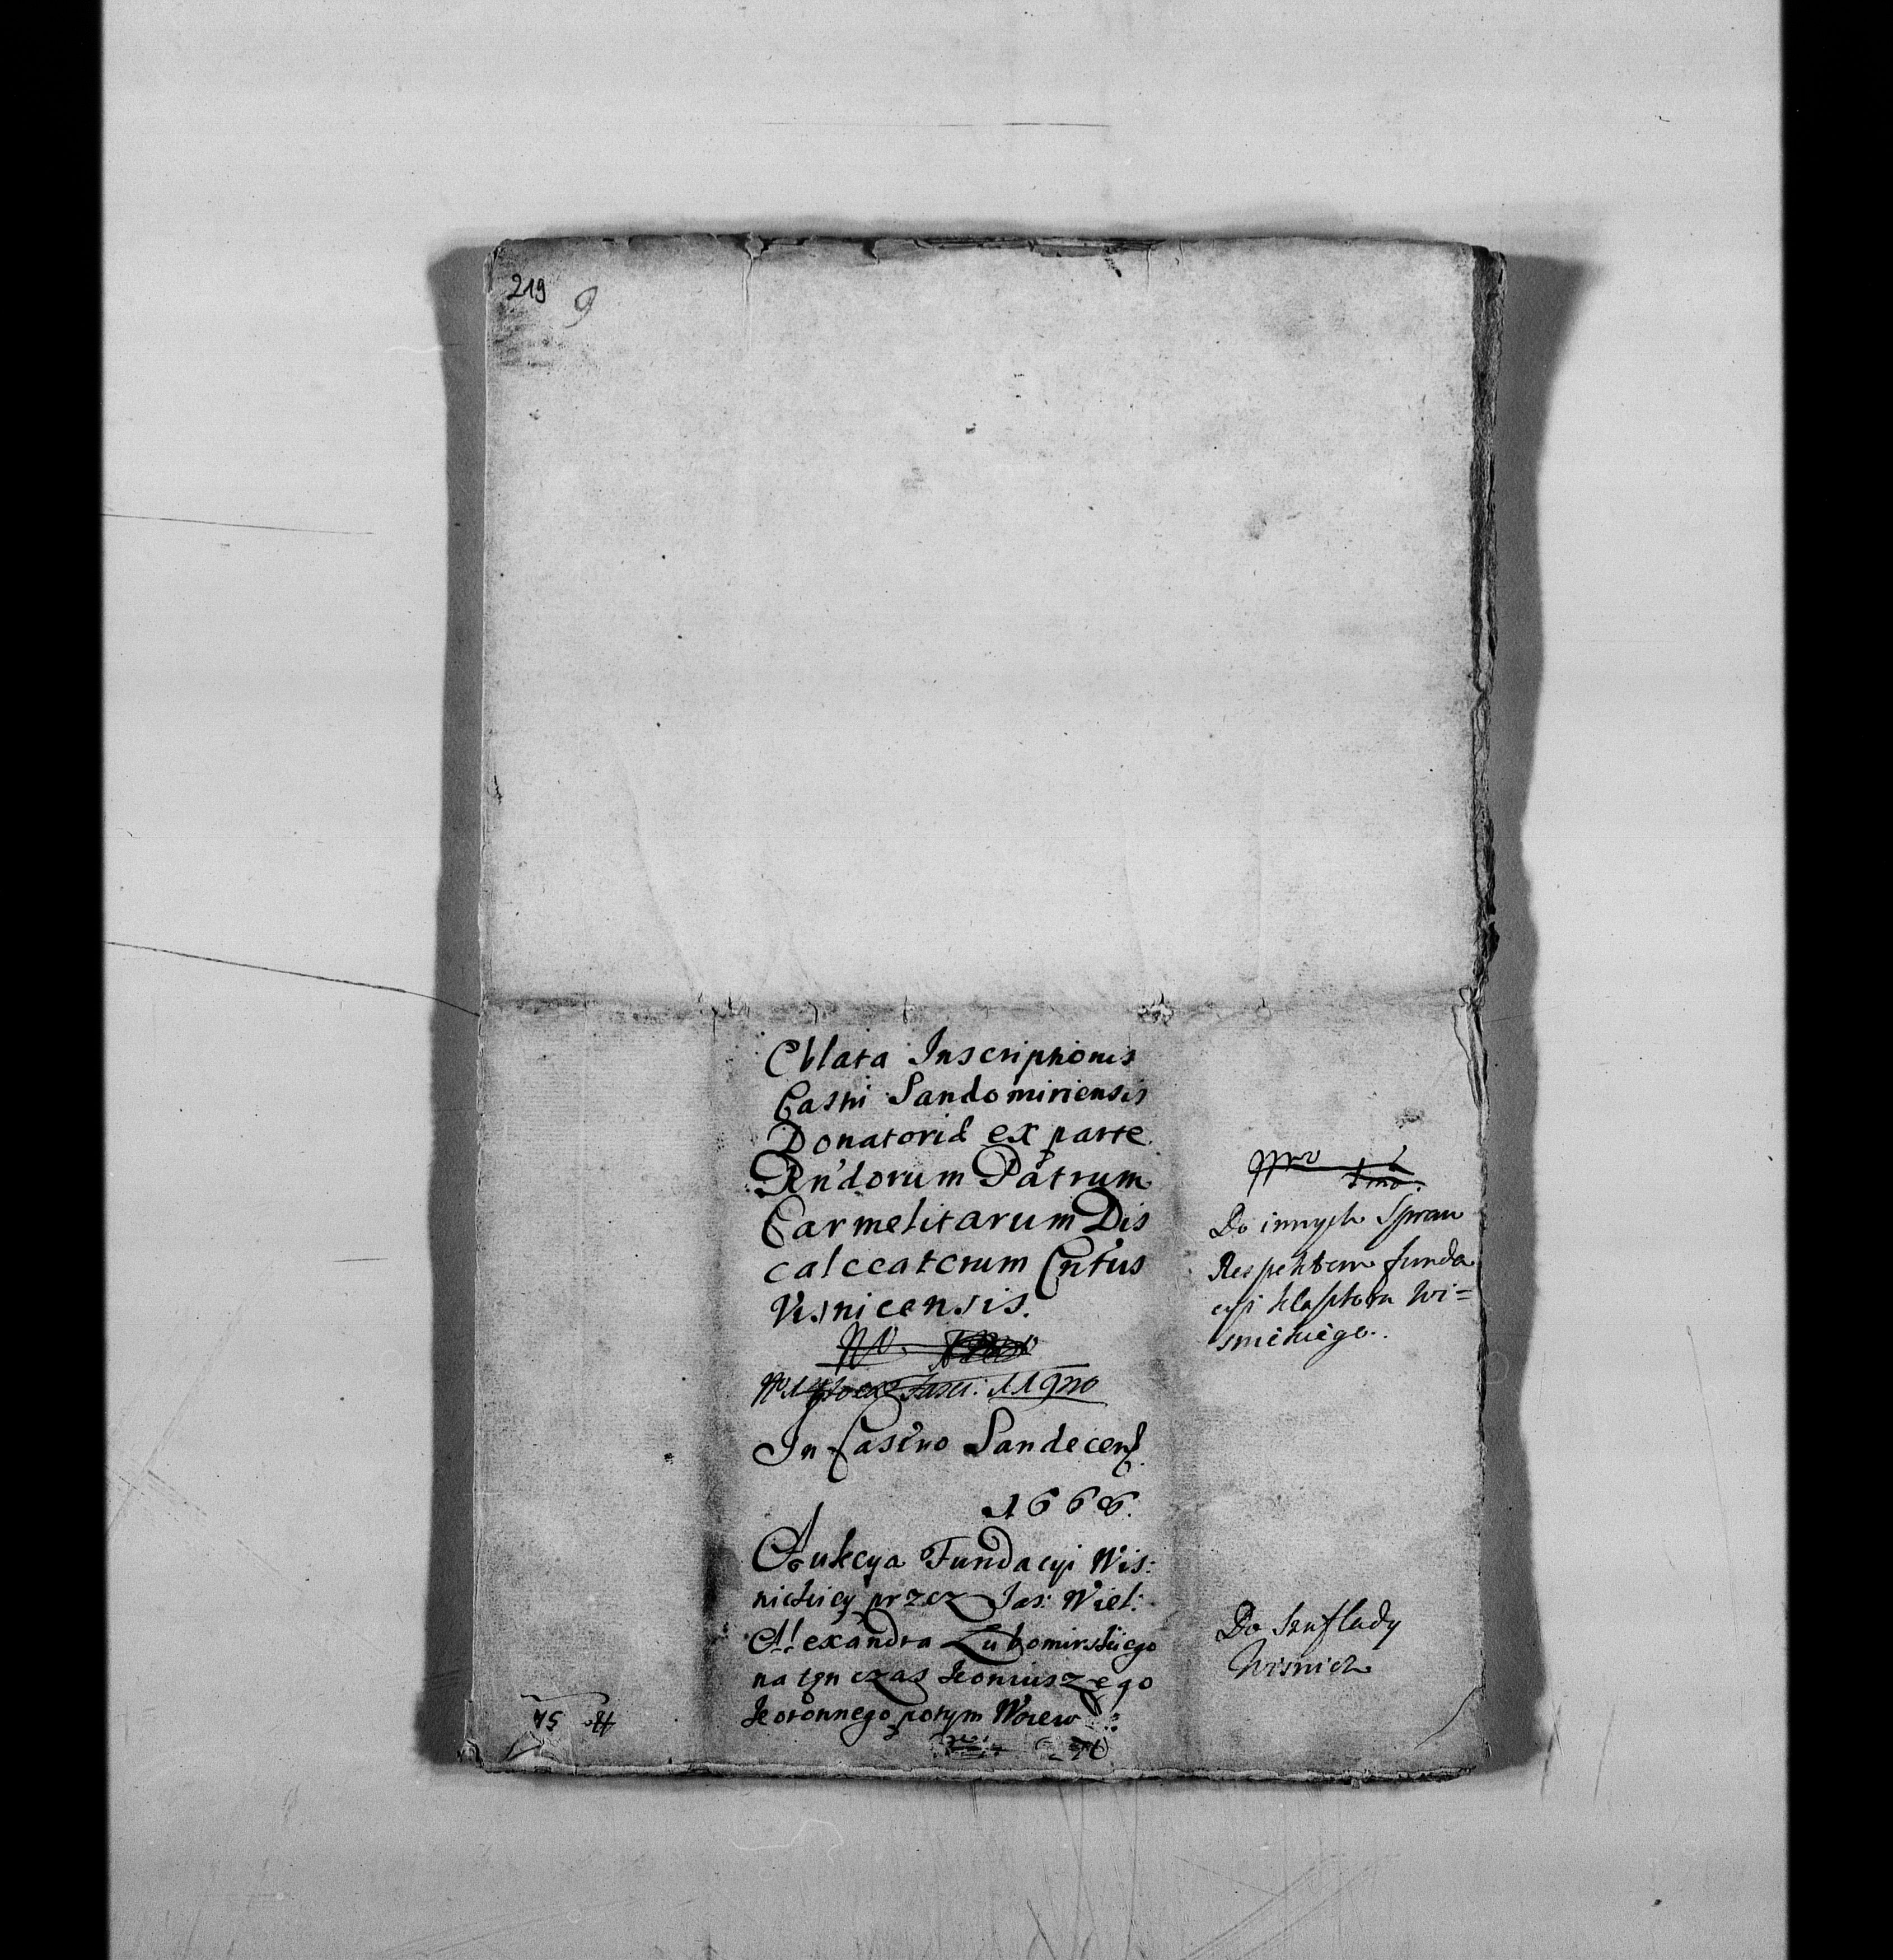 219 9
Oblata Inscriptionis
Castri Sandomiriensis
Donatoriae ex parte
Rndorum Patrum
Carmelitarum Dis
calceatorum Cntus
Visnicensis.
No.
In Castro Sandecens
1666.
Aukcya Fundacyi Wis:
nickiey przez Jas: Wiel:
Alexandra Lubomirskiego
na ten czas Koniuszego
Koronnego potym Woiew
Do innych Spraw
Respektem funda
cyi klasztoru Wi=
snickiego.
Do Szuflady
Wisnicz
No 54